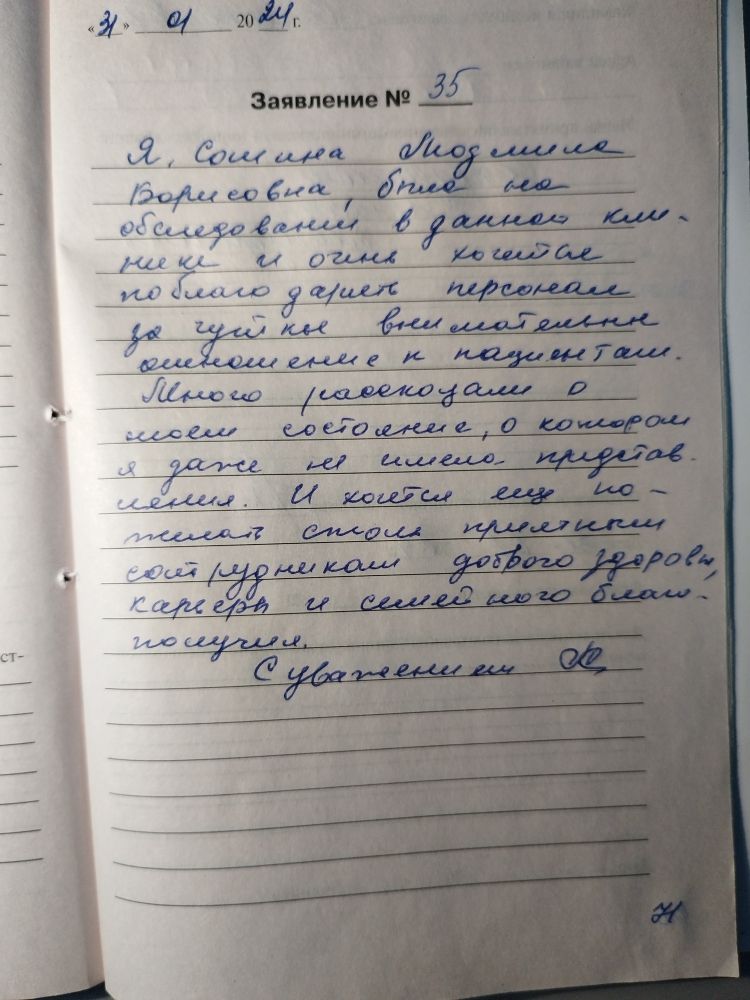 «31» 01 2024 г.
Заявление № 35
Я, Сошина Людмила
Борисовна, была на
обследовании в данной кли-
нике и очень хочется
поблагодарить персонал
за чуткое внимательны
отношение к пациентам.
Много рассказали о
моем состояние, о котором
я даже не имела представ-
ления. И хочется еще по-
желать столь приятным
сотрудникам доброго здоровья,
карьеры и семейного благо-
получия.
С уважением
ст-
71